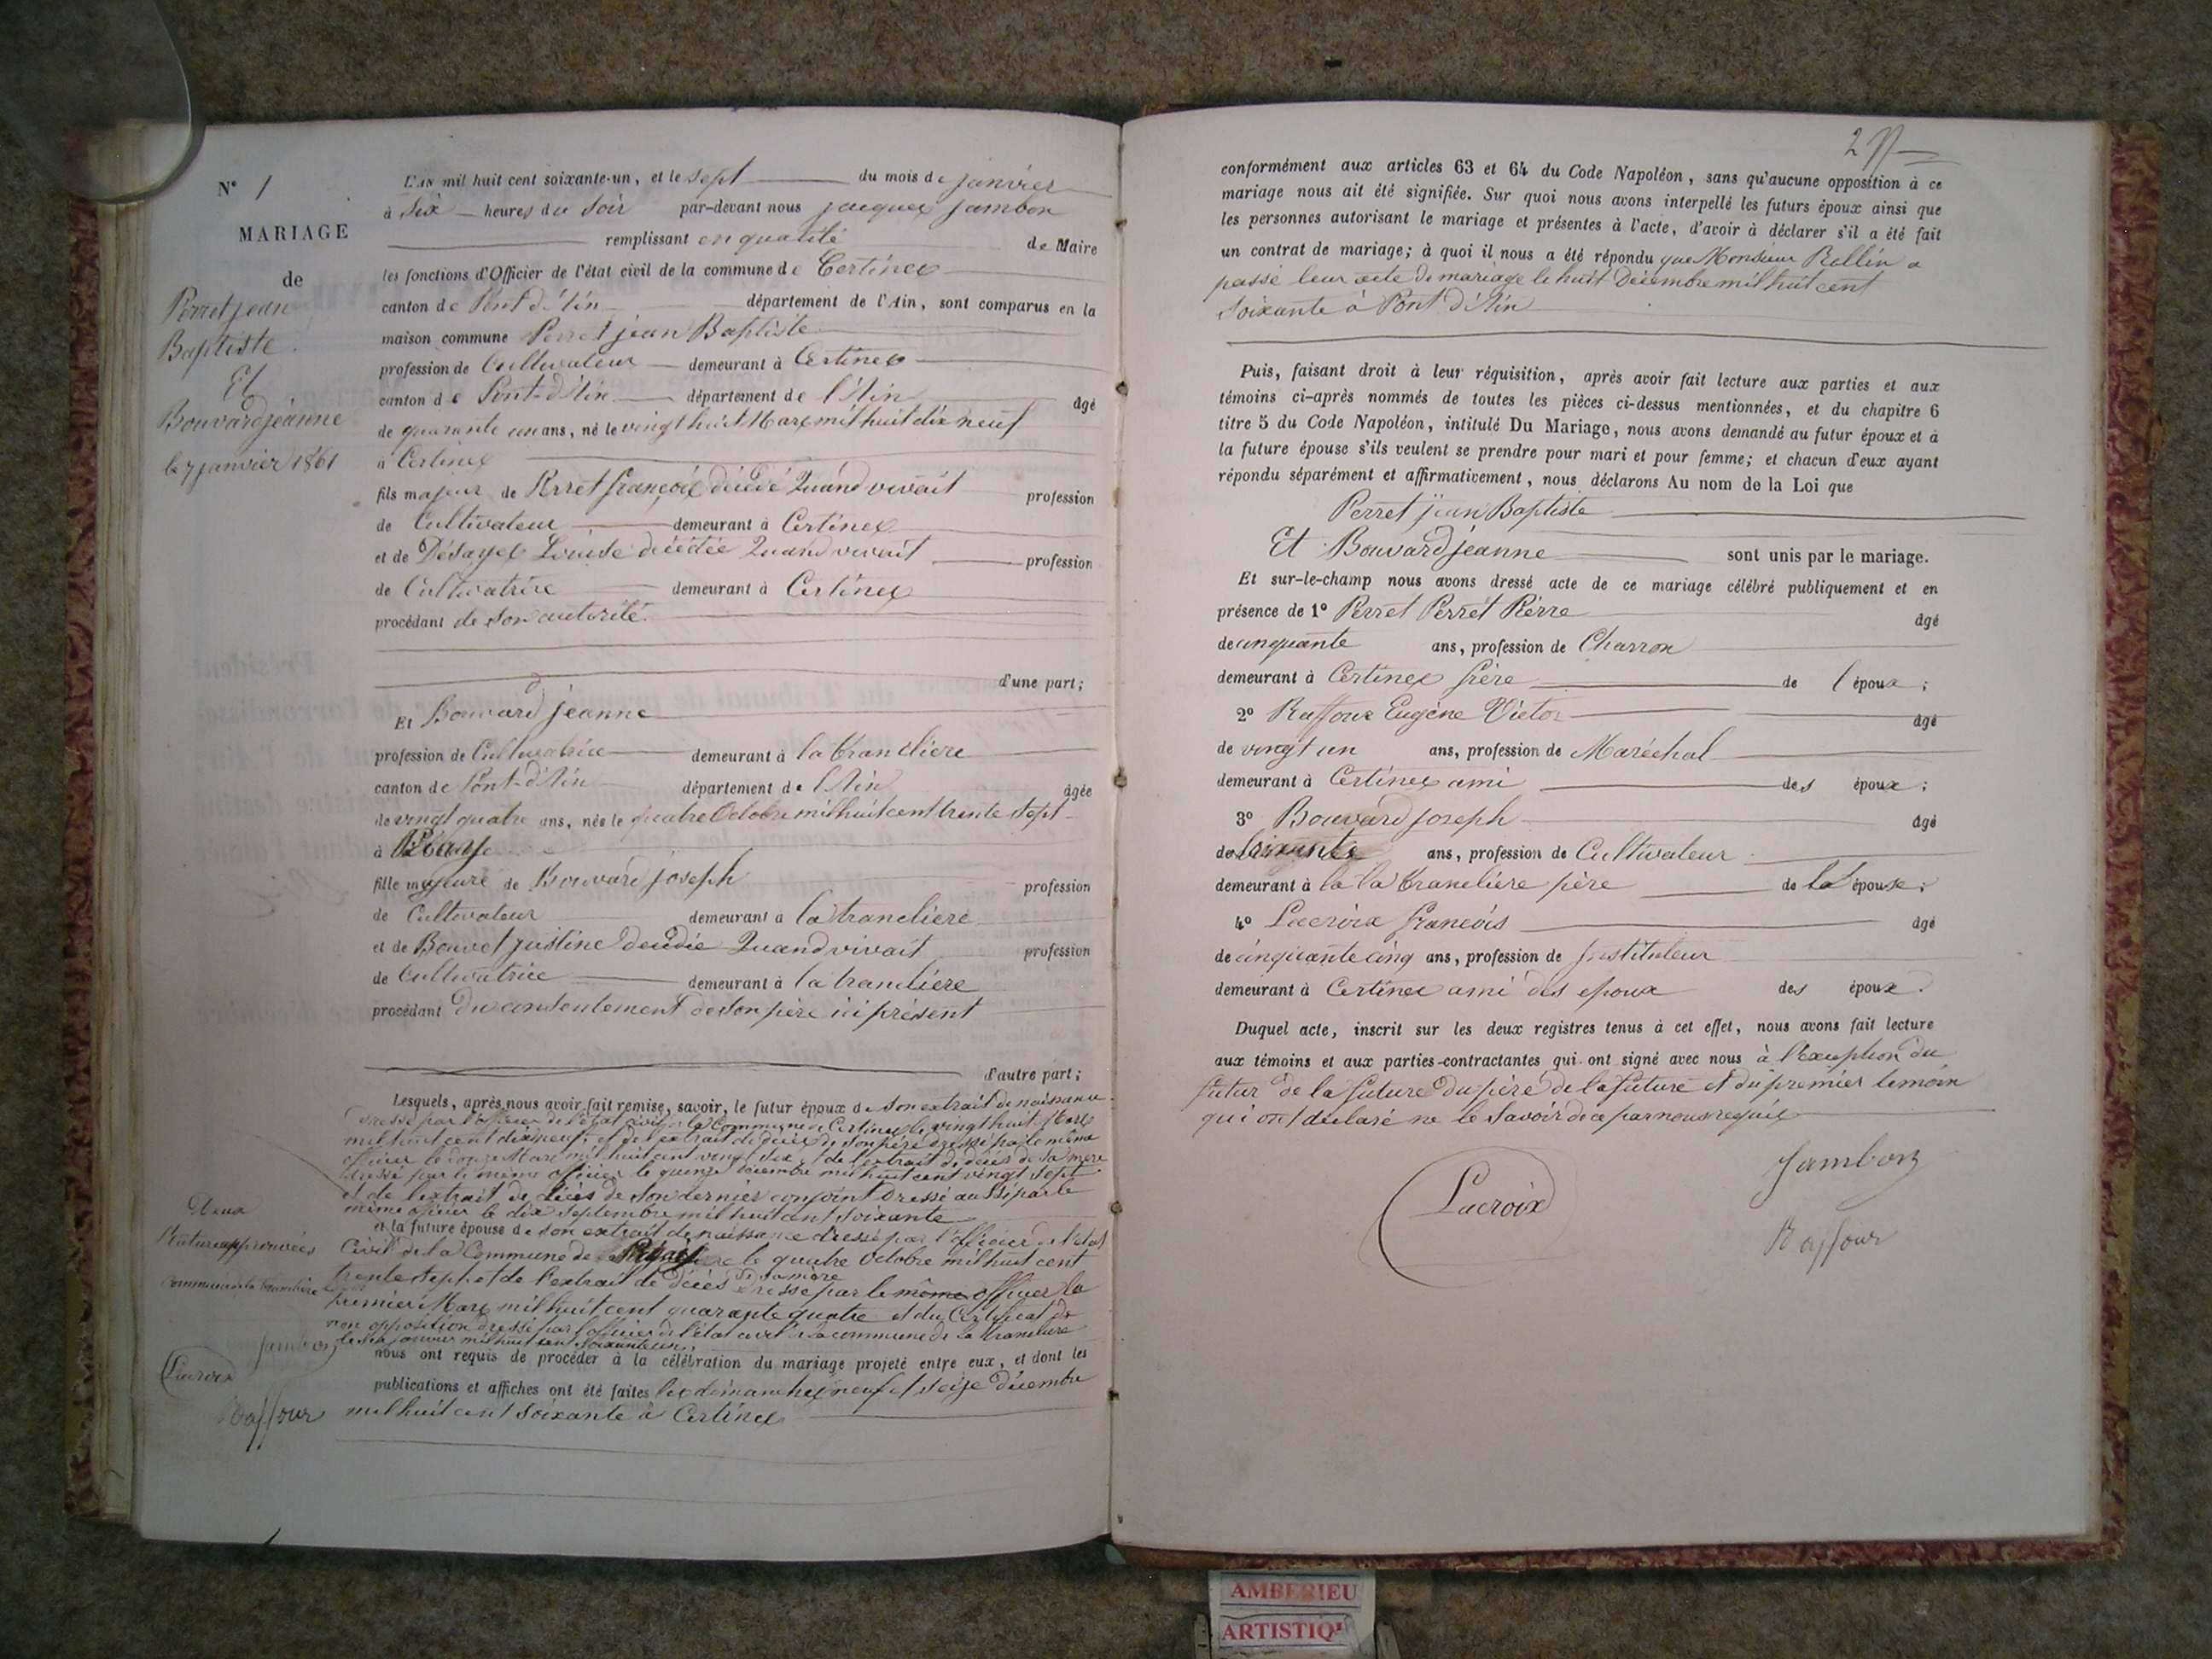 N° 1
MARIAGE
de
Perret jean
Baptiste
Et
Bouvard jeanne
le 7 janvier 1861
L'AN mil huit cent soixante-un, et le sept du mois de janvier
à Six heures du Soir par-devant nous jacques Jambon
remplissant en qualité de Maire
les fonctions d'Officier de l'état civil de la commune de Certines
canton de Pont d'Ain département de l'Ain, sont comparus en la
maison commune Perret jean Baptiste
profession de Cultivateur demeurant à Certines
canton de Pont-d'Ain département de l'Ain âgé
de quarante un ans, né le vingt huit Mars mil huit dix neuf
à Certines
fils majeur de Perret françois décédé Quand vivait profession
de Cultivateur demeurant à Certines
et de Désayes Louise décédée Quand vivait profession
de Cultivatrice demeurant à Certines
procédant de son autorité.
d'une part;
Et Bouvard jeanne
profession de Cultivatrice demeurant à la tranclière
canton de Pont-d'Ain département de l'Ain âgée
de vingt quatre ans, née le quatre Octobre mil huit cent trente sept
à
fille majeure de Bouvard joseph profession
de Cultivateur demeurant à la tranclière
et de Bouvet justine décédée Quand vivait profession
de Cultivatrice demeurant à la tranclière
procédant du consentement de son père ici présent
d'autre part;
Lesquels, après nous avoir fait remise, savoir, le futur époux de son extrait de naissance
dressé par l'officier de l'état civil de la Commune de Certines le vingt huit Mars
mil huit cent dix neuf; et de l'extrait de décès de son père dressé par le même
officier le douze Mars mil huit cent vingt six, de l'extrait de décès de sa mère
dressé par le même officier le quinze décembre mil huit cent vingt sept
et de l'extrait de décès de son dernier conjoint dressé aussi par le
même officier le dix Septembre mil huit cent soixante
et la future épouse de son extrait de naissance dressé par l'officier de l'état
Civil de la Commune de le quatre Octobre mil huit cent
trente sept et de l'extrait de décès de sa mère dressé par le même officier le
premier Mars mil huit cent quarante quatre et du Certificat de
non opposition dressé par l'officier de l'état civil de la commune de la tranclière
le six janvier mil huit cent soixante un,
nous ont requis de procéder à la célébration du mariage projeté entre eux, et dont les
publications et affiches ont été faites les dimanches neuf et seize décembre
mil huit cent soixante à Certines
Deux
Ratures approuvées
Commune de la tranclière
Jambon
Lacroix
Raffour
2
conformément aux articles 63 et 64 du Code Napoléon, sans qu'aucune opposition à ce
mariage nous ait été signifiée. Sur quoi nous avons interpellé les futurs époux ainsi que
les personnes autorisant le mariage et présentes à l'acte, d'avoir à déclarer s'il a été fait
un contrat de mariage; à quoi il nous a été répondu que Monsieur Rollin a
passé leur acte de mariage le huit Décembre mil huit cent
Soixante à Pont d'Ain
Puis, faisant droit à leur réquisition, après avoir fait lecture aux parties et aux
témoins ci-après nommés de toutes les pièces ci-dessus mentionnées, et du chapitre 6
titre 5 du Code Napoléon, intitulé Du Mariage, nous avons demandé au futur époux et à
la future épouse s'ils veulent se prendre pour mari et pour femme; et chacun d'eux ayant
répondu séparément et affirmativement, nous déclarons Au nom de la Loi que
Perret jean Baptiste
Et Bouvard jeanne sont unis par le mariage.
Et sur-le-champ nous avons dressé acte de ce mariage célébré publiquement et en
présence de 1° Perret Perret Pierre âgé
de cinquante ans, profession de Charron
demeurant à Certines frère de l'époux;
2° Raffour Eugène Victor âgé
de vingt un ans, profession de Maréchal
demeurant à Certines ami des époux;
3° Bouvard joseph âgé
de soixante ans, profession de Cultivateur
demeurant à la la tranclière père de la épouse;
4° Lacroix françois âgé
de cinquante cinq ans, profession de Instituteur
demeurant à Certines ami des epoux des époux.
Duquel acte, inscrit sur les deux registres tenus à cet effet, nous avons fait lecture
aux témoins et aux parties-contractantes qui ont signé avec nous à l'exception du
futur de la future du père de la future et du premier temoin
qui ont déclaré ne le Savoir de ce par nous requis
Jambon
Lacroix
Raffour
AMBERIEU
ARTISTIQ